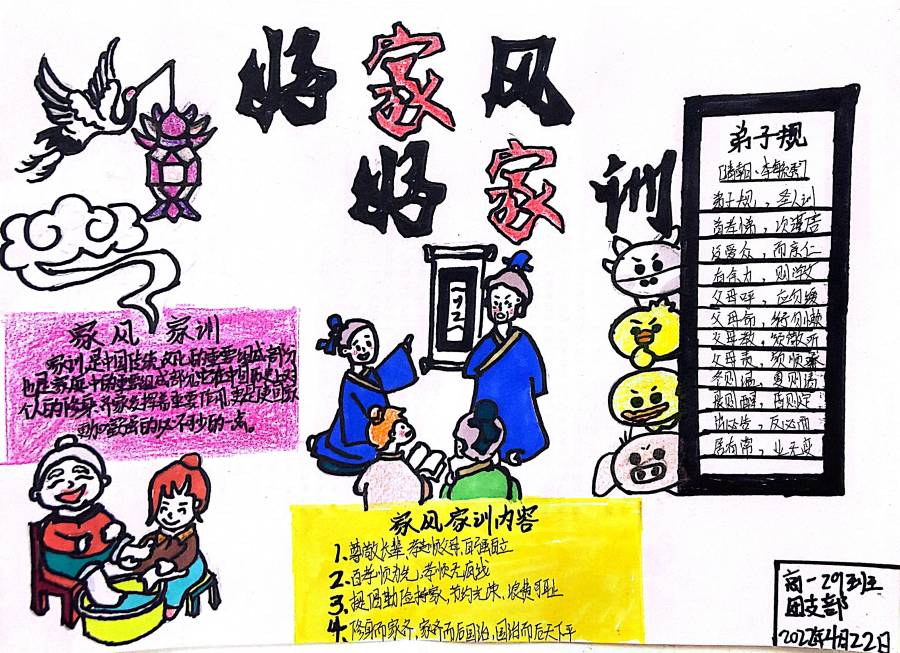 好家风
好家训
家风 家训
家训,是中国传统文化的重要组成部分
也是家庭中的重要组成部分它在中国历史上对
个人的修身、齐家发挥着重要作用
的必不可少的一点。
弟子规
[清朝·李毓秀]
弟子规,圣人训
首孝悌,次谨信
泛爱众,而亲仁
有余力,则学文
父母呼,应勿缓
父母命,行勿懒
父母教,须敬听
父母责,须顺承
冬则温,夏则凊
晨则省,昏则定
出必告,反必面
居有常,业无变
家风家训内容
1.尊敬长辈,孝顺父母,自强自立
2.百孝顺为先,孝顺无底线
3.提倡勤俭持家,节约光荣,浪费可耻
4.修身而家齐,家齐而后国治,国治而后天下平
商一29班
团支部
2022年4月22日